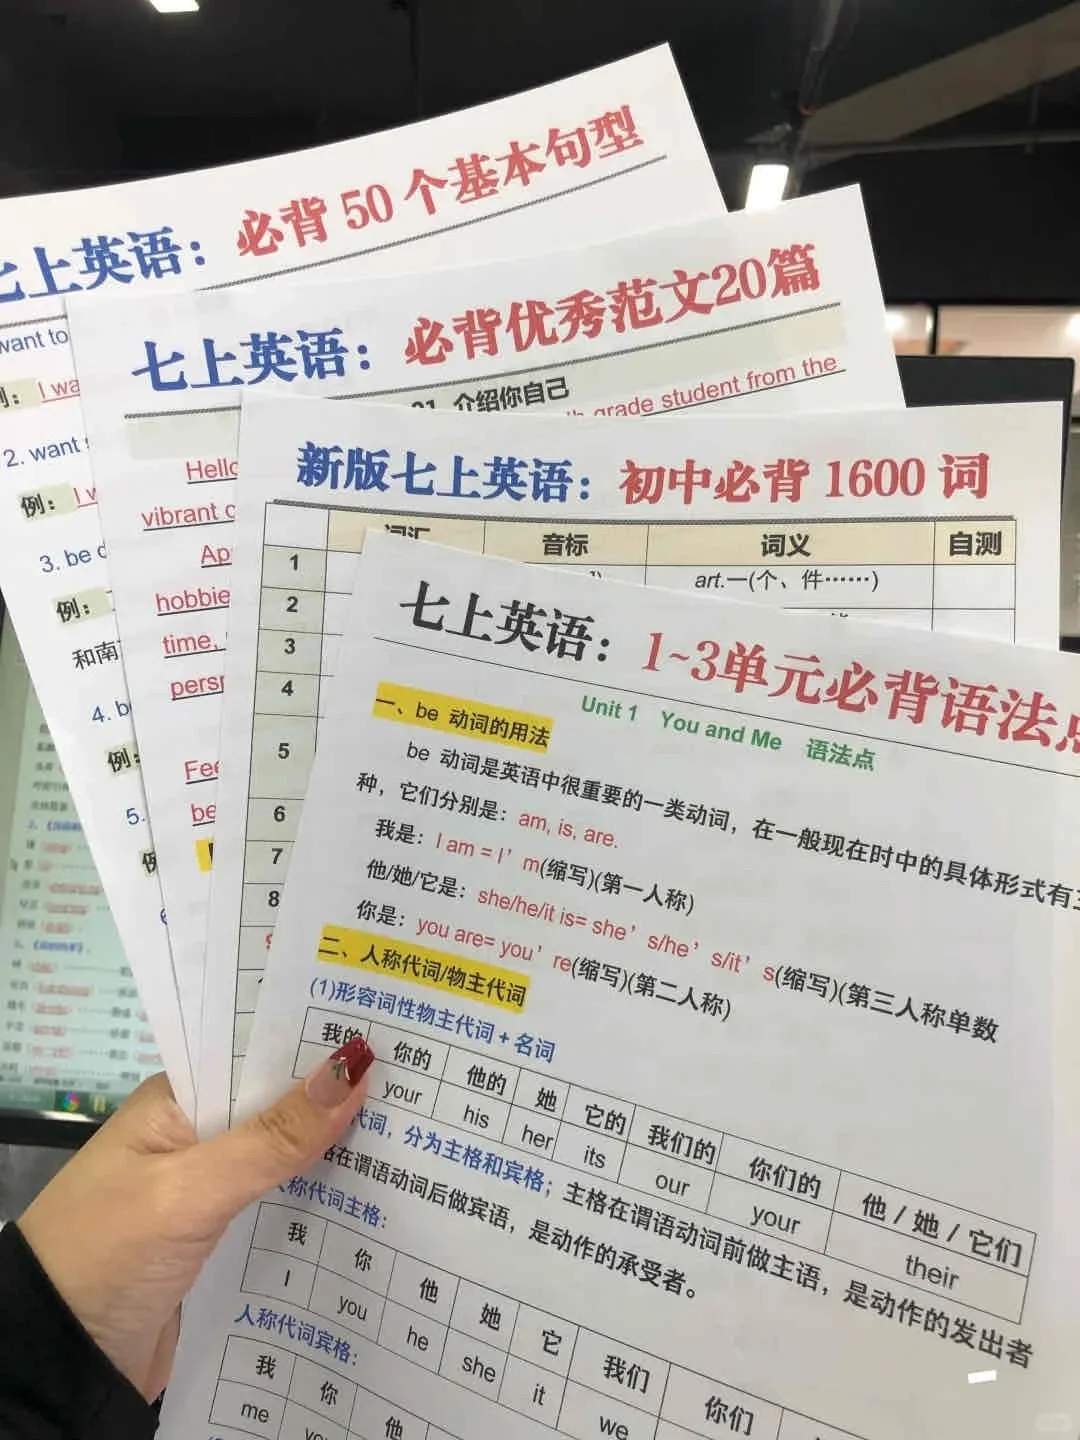 七上英语：必背 50 个基本句型
want to
例：I wa
2. want
例：I w
3. be
例：
和南
4. b
例：
5.
例
七上英语：必背优秀范文20篇
01. 介绍你自己
grade student from the
Hello
vibrant
hobbie
time,
pers
Fee
be
新版七上英语：初中必背 1600 词
词汇 音标 词义 自测
1 art.一(个、件……)
2
3
4
5
6
7
8
七上英语：1~3单元必背语法点
Unit 1 You and Me 语法点
一、be 动词的用法
be 动词是英语中很重要的一类动词，在一般现在时中的具体形式有三
种，它们分别是：am, is, are.
我是：I am = I’m(缩写)(第一人称)
他/她/它是：she/he/it is= she’s/he’s/it’s(缩写)(第三人称单数
你是：you are= you’re(缩写)(第二人称)
二、人称代词/物主代词
(1)形容词性物主代词 + 名词
我的 你的 他的 她 它的 我们的 你们的 他 / 她 / 它们
your his her its our your their
代词，分为主格和宾格；主格在谓语动词前做主语，是动作的发出者
格在谓语动词后做宾语，是动作的承受者。
人称代词主格：
我 你 他 她 它 我们 你们
I you he she it we
人称代词宾格：
我 你 他
me